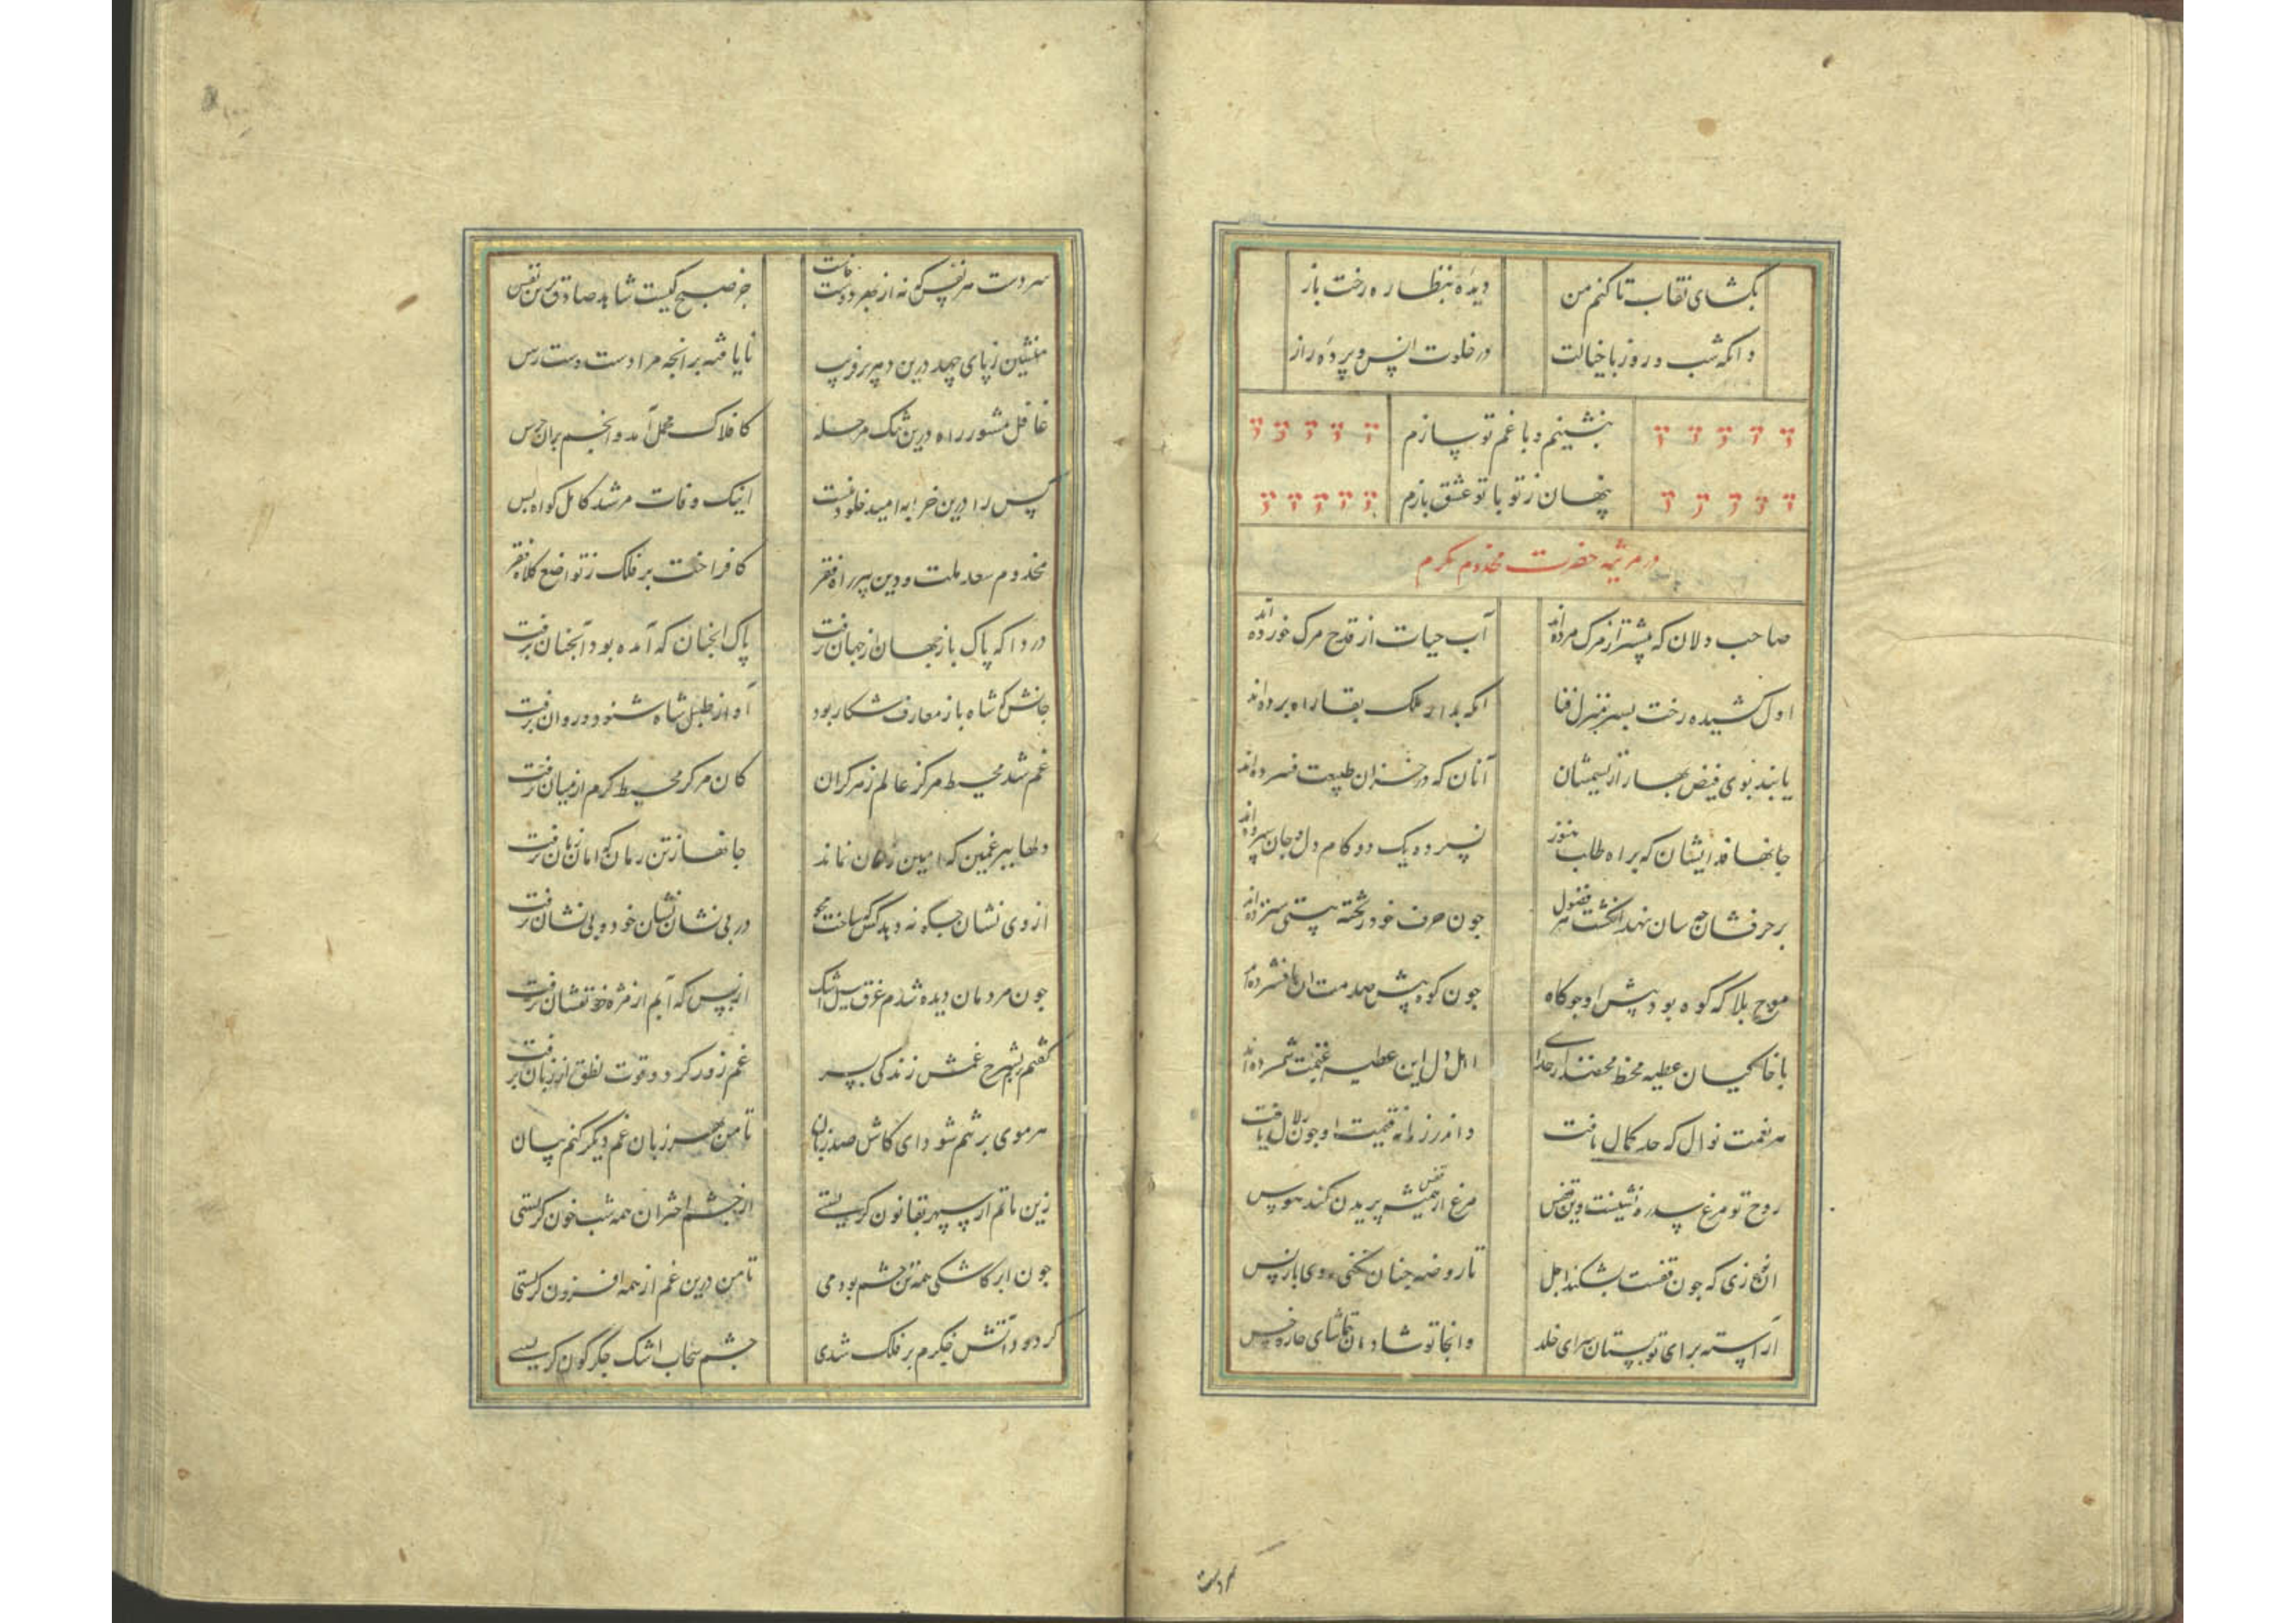 بگشای نقاب تا کنم من دیده بنظاره رخت باز
و انکه شب و روز با خیالت در خلوت انس و پرده راز
بنشینم و با غم تو سازم
پنهان ز تو با تو عشق بازم
در مرثیه حضرت مخدوم مکرم
صاحب دلان که پیشتر از مرگ مرده‌اند آب حیات از قدح مرگ خورده‌اند
اول کشیده رخت بسر منزل فنا انکه بدار ملک بقا راه برده‌اند
یابند بوی فیض بهار از نسیمشان آنان که در خزان طبیعت فسرده‌اند
جانها فدای‌شان که براه طلب هنوز نسپرده یک دو گام دل و جان سپرده‌اند
بر حرفشان چه سان نهد انگشت هر فضول چون حرف خود ز تخته هستی سترده‌اند
موج بلا که کوه بود پیش او چو کاه چون کوه پیش صدمت ان پا فشرده‌اند
با خاکیان عطیه محضند از خدای اهل دل این عطیه غنیمت شمرده‌اند
هر نعمت نوال که حد کمال یافت داند زمانه قیمت او چون زوال یافت
روح تو مرغ سدره نشینست و تن قفس مرغ از قفس همیشه پریدن کند هوس
ان نوع زی که چون قفست بشکند اجل تا روضه جنان نکنی روی باز پس
آراسته برای تو بستان سرای خلد وانجا تو شادمان تماشای خار و خس
سردست هر نفس که نه از بهر دوست خاست جز صبح کیست شاهد صادق برین نفس
منشین ز پای جهد درین دیر پر فریب نایافته بر انچه مرا دست دست رس
غافل مشو ز راه درین تنگ مرحله کافلاک محمل آمد و انجم بران جرس
کس را درین خرابه امید خلود نیست اینک وفات مرشد کامل کواه بس
مخدوم سعد ملت و دین پیر راه فقر کافراخت بر فلک ز تواضع کلاه فقر
دردا که پاک باز جهان از جهان برفت پاک انچنان که آمده بود آنچنان برفت
جانش که شاه باز معارف شکار بود آواز طبل شاه شنود و روان برفت
غم شد محیط مرکز عالم ز هر کران کان مرکز محیط کرم از میان برفت
دلها ببر غمین که امین زمان نماند جانها ز تن رمان که امان زمان برفت
از وی نشان چگونه دهد کس که ساخت محو در بی نشان نشان خود و بی نشان برفت
چون مردمان دیده شدم غرق سیل اشک از بس که آبم از مژه خونفشان برفت
گفتم بشرح غمش زندگی بسر غم زور کرد و قوت نطق از زبان برفت
هر موی بر تنم شود ای کاش صد زبان تا من بهر زبان غم دیگر کنم بیان
زین ماتم ار سپهر بقانون گریستی از چشم اختران همه شب خون گریستی
چون ابر کاشکی همه تن چشم بودمی تا من درین غم از همه افزون گریستی
گر دود آتش جگرم بر فلک شدی چشم سحاب اشک جگرگون گریستی
سردست